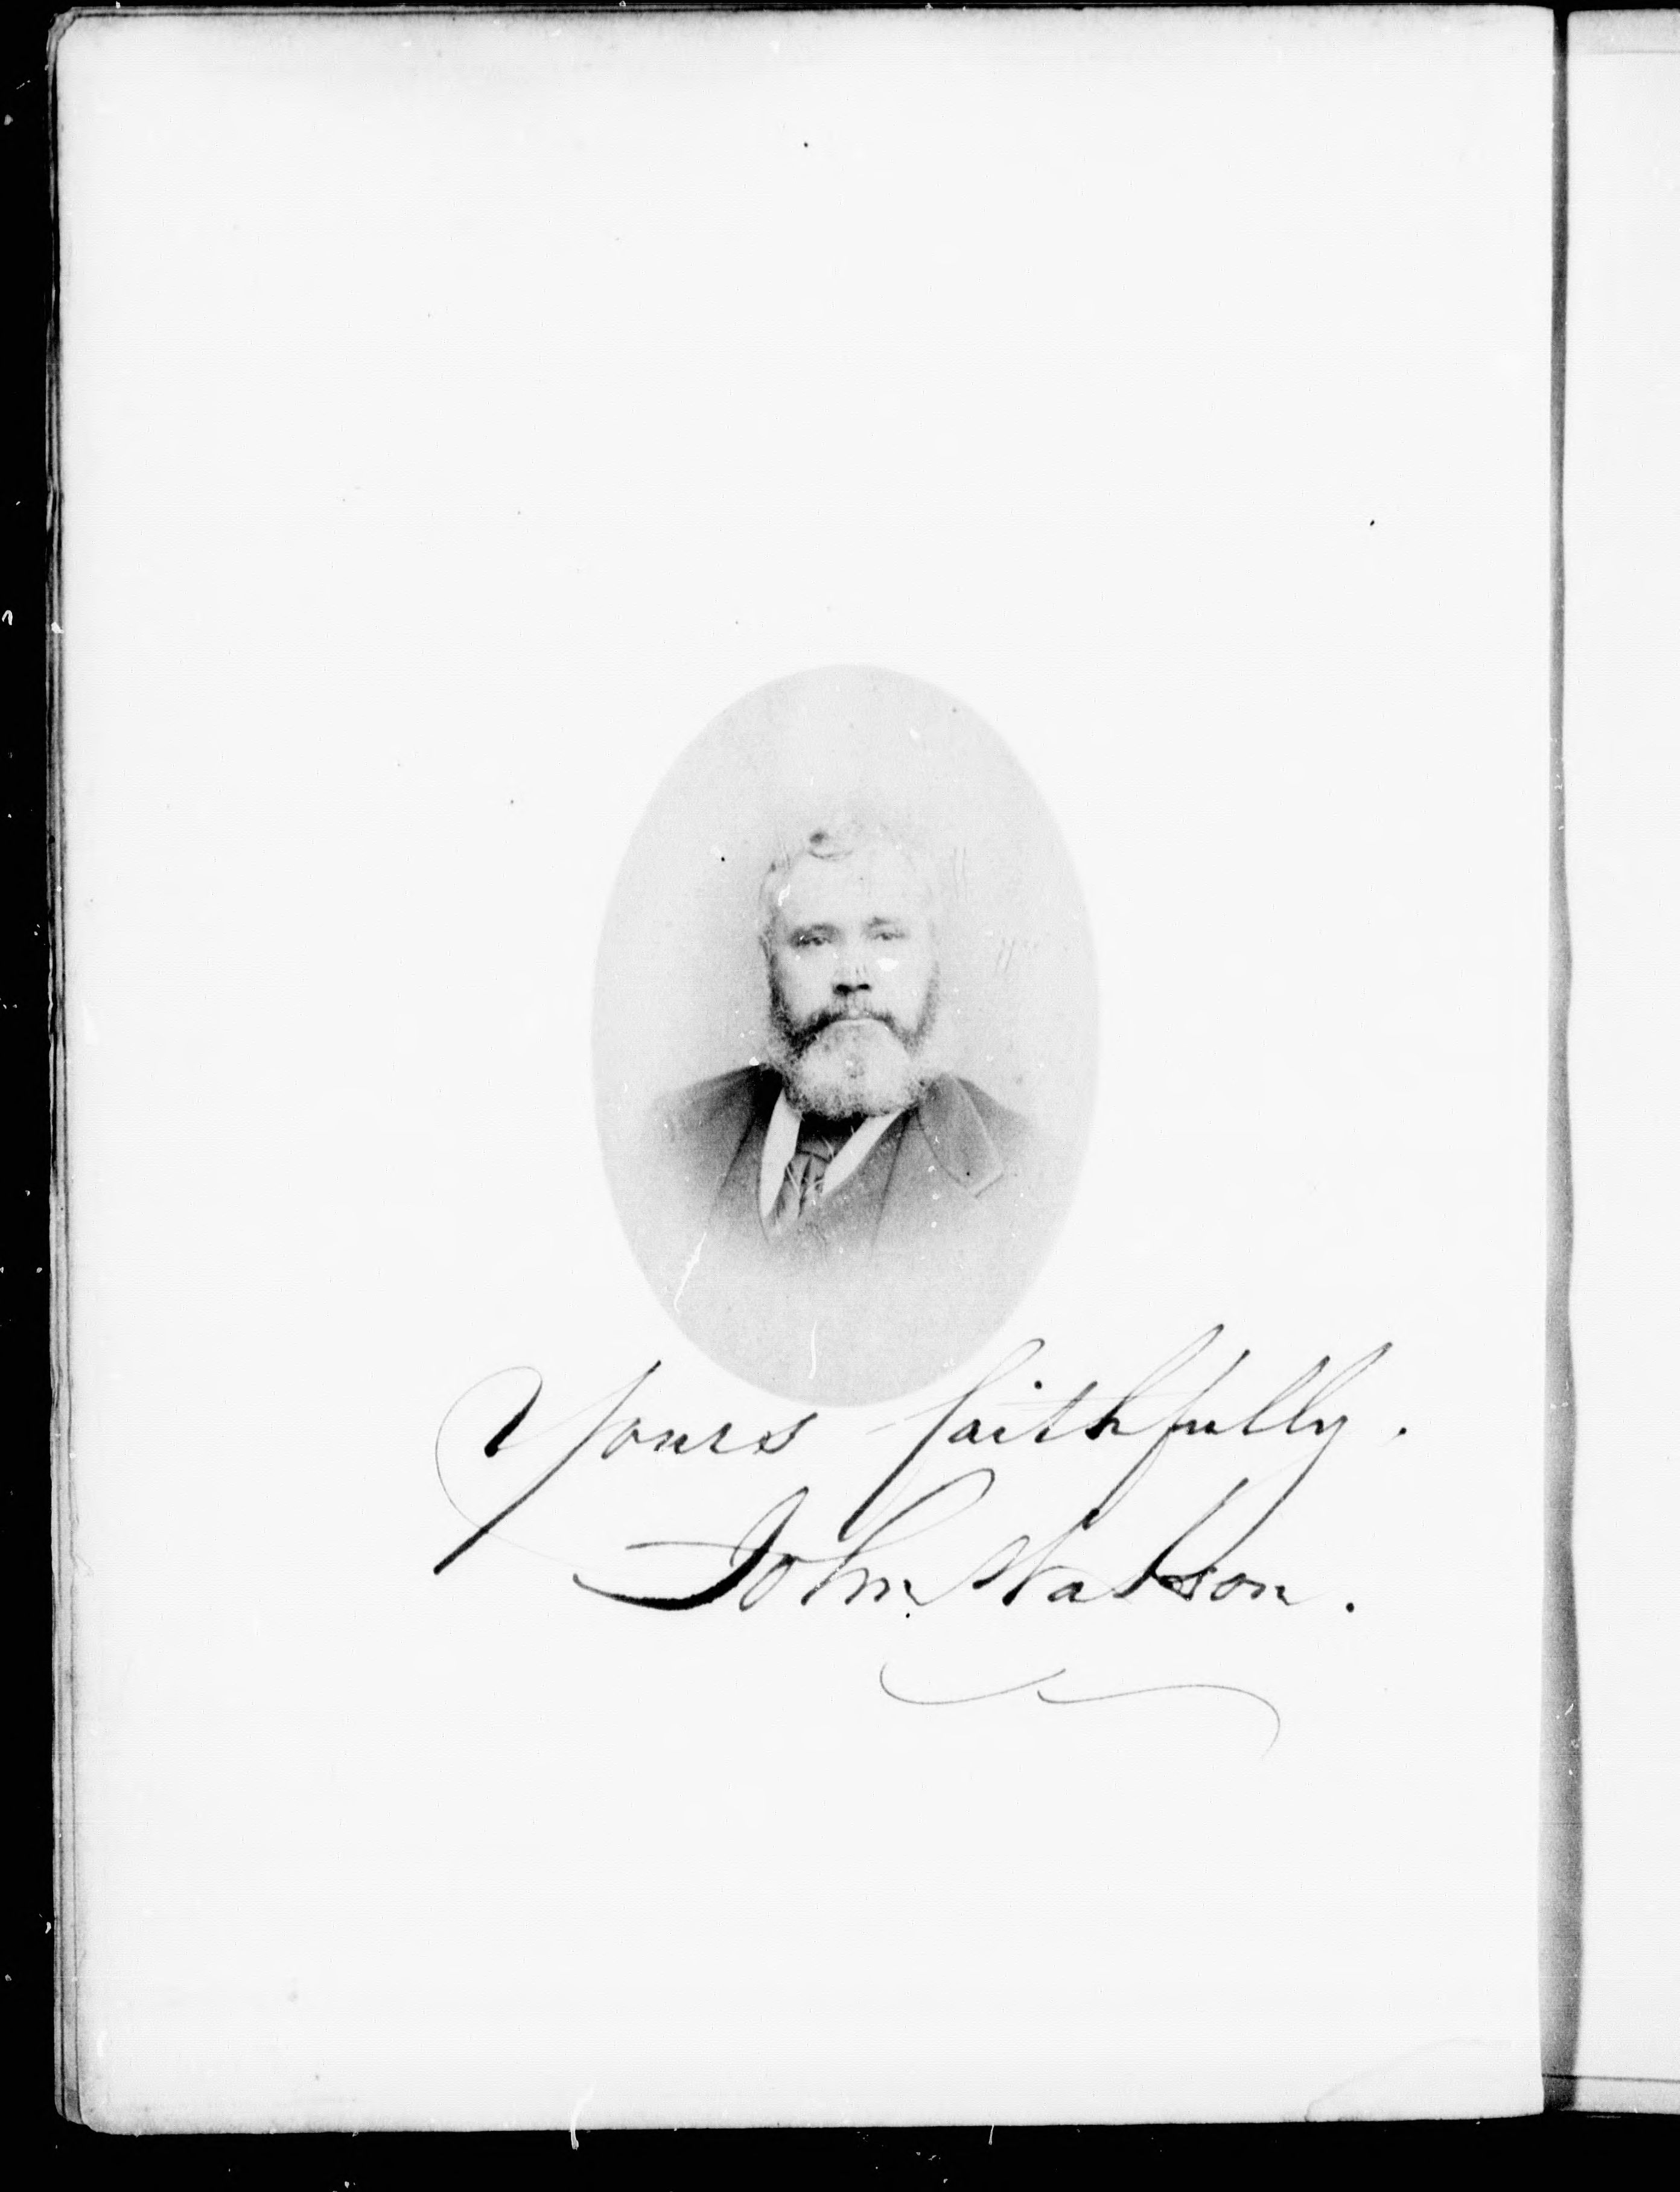 Yours faithfully.
John Watson.